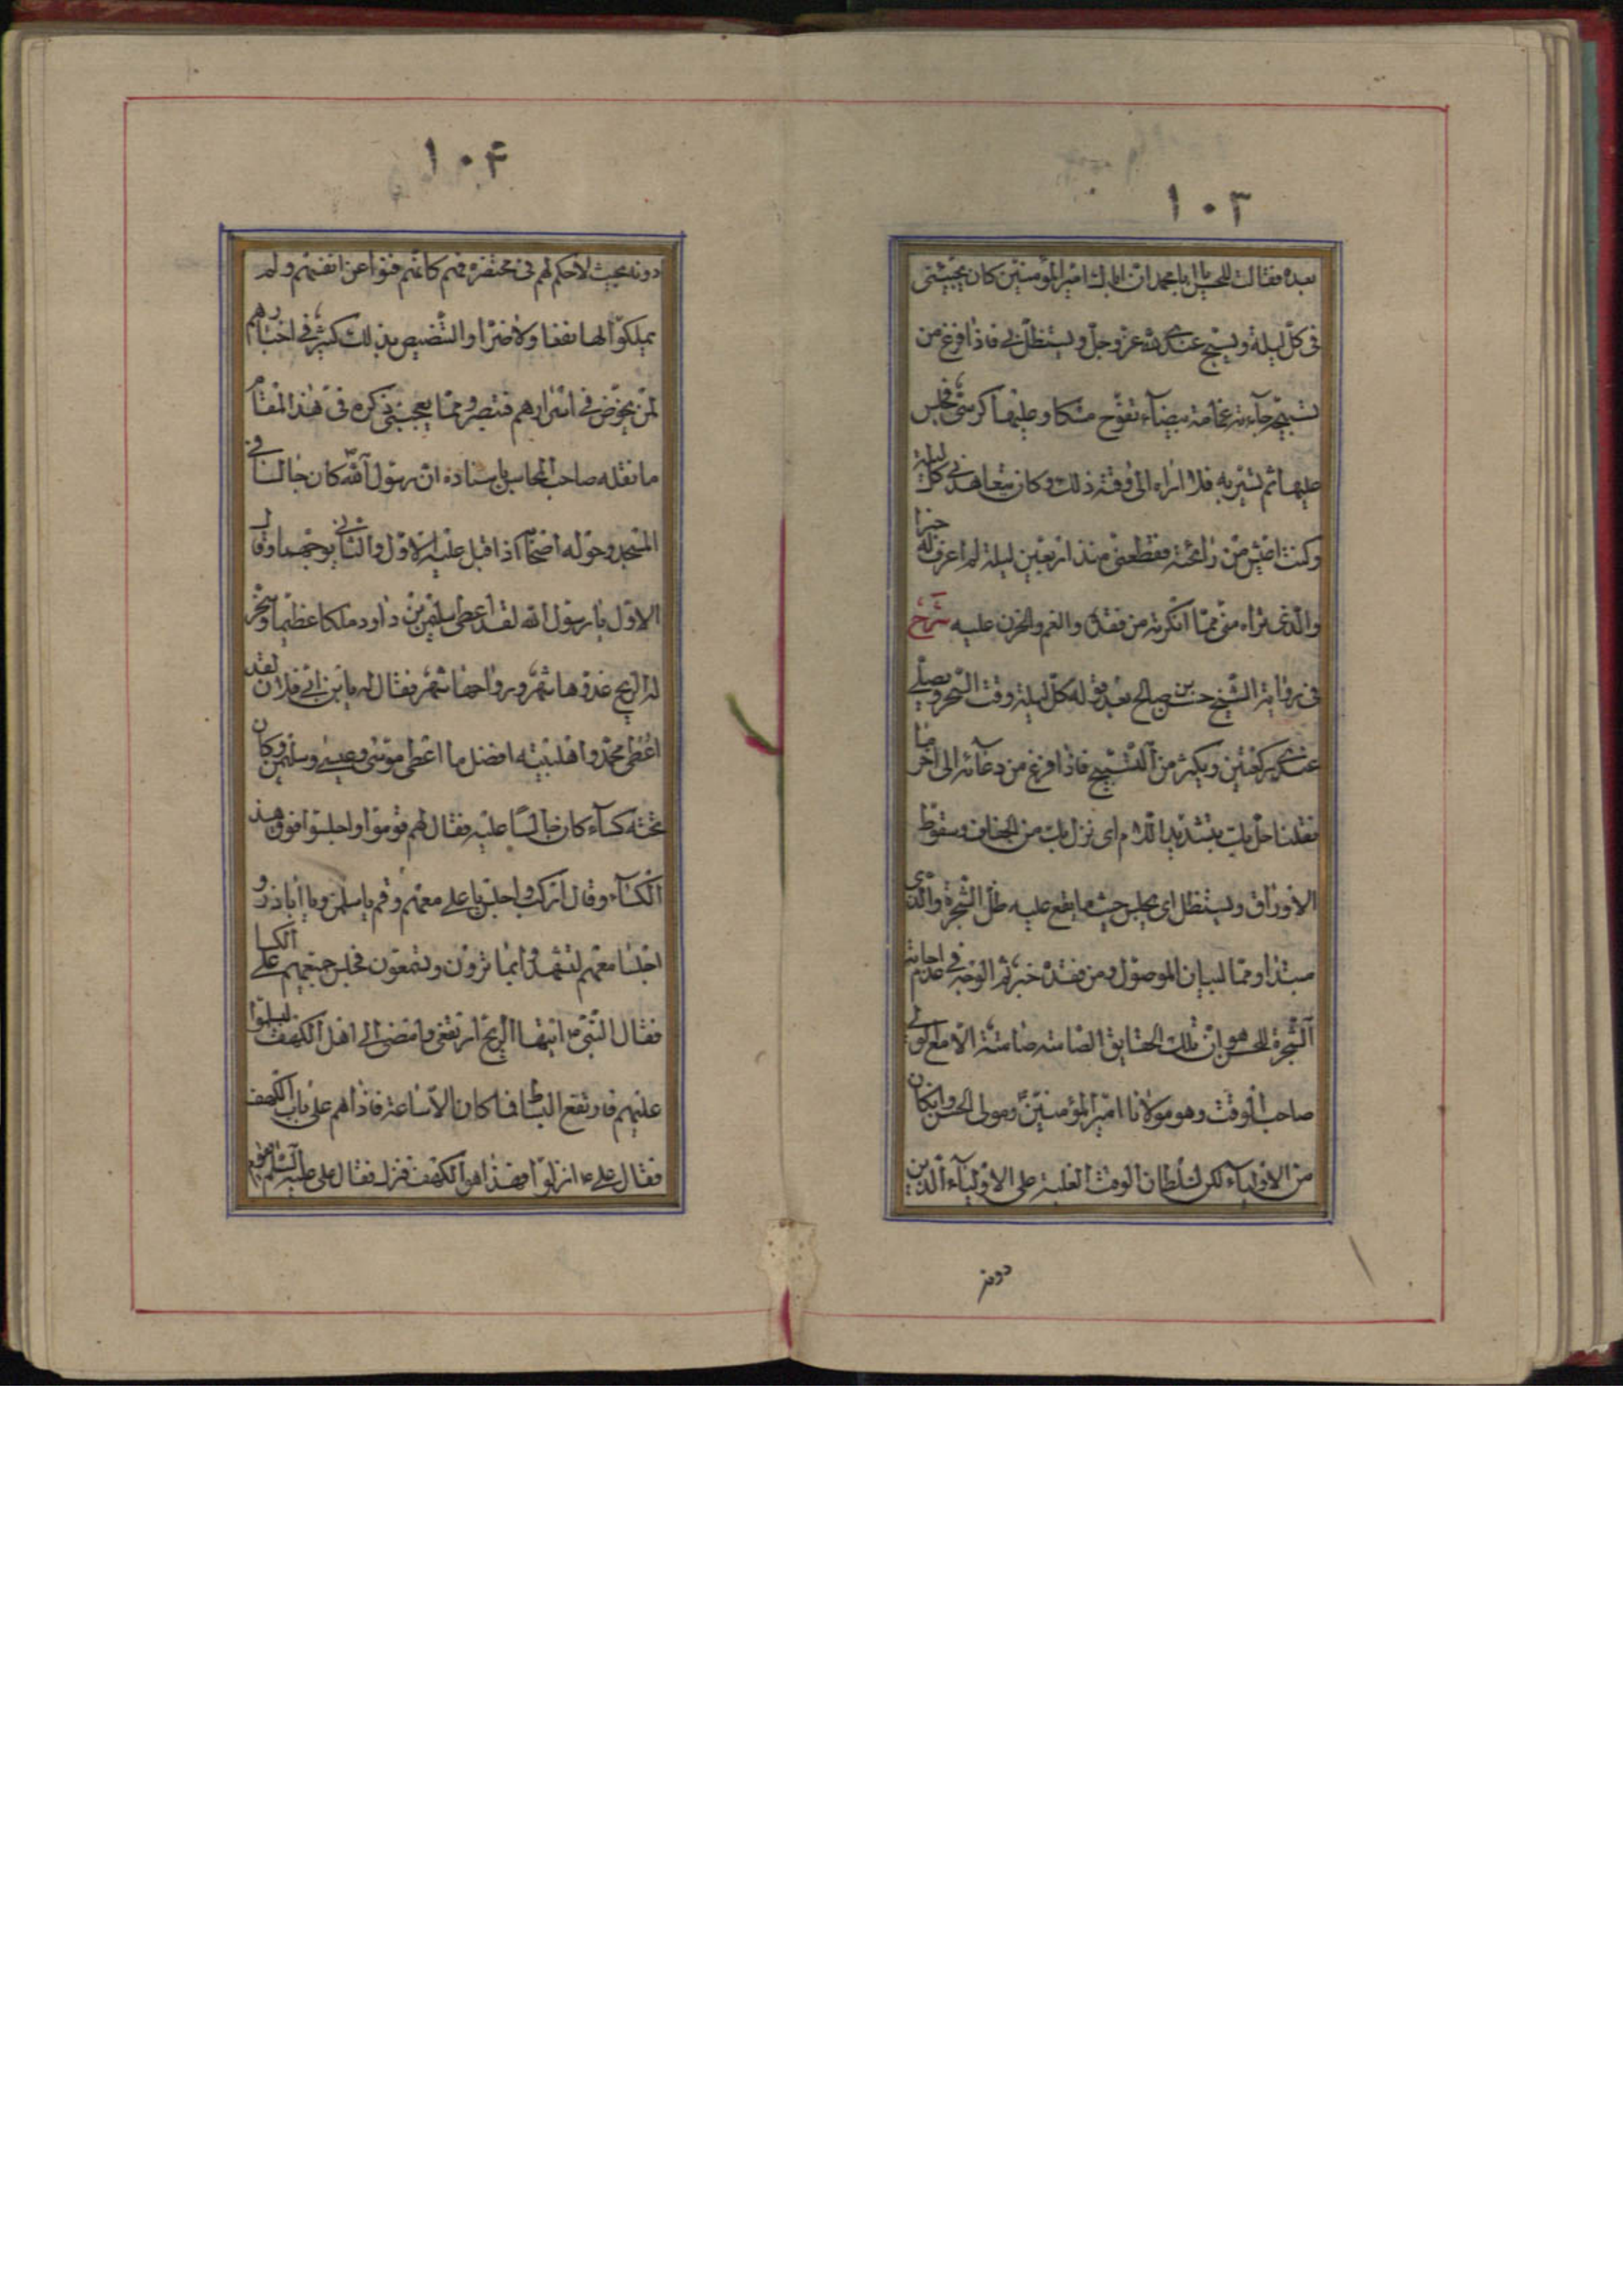 ١٠٣
بعده فقالت للحسن يا ابا محمد ان اباك امير المؤمنين كان يجيئني
في كل ليلة ويسبح عندي لله عز وجل ويستظل بي فاذا فرغ من
تسبيحه جاءته غمامة بيضاء تفوح مسكا وعليها كرسي فجلس
عليها ثم تسير به فلا اراه الى وقته ذلك وكان يتعاهدني كل ليلة
وكنت اعيش من رائحته فقطعني منذ اربعين ليلة لم اعرف له خبرا
والذي تراه مني مما انكرته من فقده والغم والحزن عليه شرح
في رواية الشيخ حسن بن صالح بعد قوله كل ليلة وقت السحر ويصلي
عندي ركعتين ويكثر من التسبيح فاذا فرغ من دعائه الى آخر ما
نقلنا حل بك بتشديد اللام اي نزل بك من الجفاف وسقوط
الاوراق ويستظل اي يجلس حيث ما يقع عليه ظل الشجرة والذي
مبتدا ومما لبيان الموصول ومن فقده خبر ثم الوجه في عدم اجابة
الشجرة للحسن هو ان تلك الحقايق الصامتة صامتة الا مع لولي
صاحب الوقت وهو مولانا امير المؤمنين ومولى الحسن وانكان
من الاولياء لكن لسلطان الوقت الغلبة على الاولياء الذين
دونه
١٠۴
دونه بحيث لا حكم لهم في محضره فهم كانهم فنوا عن انفسهم ولم
يملكوا لها نفعا ولا ضرا والتنصيص بذلك كثير في اخبارهم
لمن يخوض في اسرارهم فتبصر ومما يعجبني ذكره في هذا المقام
ما نقله صاحب المحاسن باسناده ان رسول الله كان جالسا في
المسجد وحوله اصحابه اذ اقبل عليه الاول والثاني بوجههما وقال
الاول يا رسول الله لقد اعطى سليمن بن داود ملكا عظيما وسخر
له الريح غدوها شهر ورواحها شهر فقال له يا بن ابي فلان لقد
اعطى محمد واهلبيته افضل ما اعطى موسى وعيسى وسليمن وكان
تحته كساء كان جالسا عليه فقال لهم قوموا واجلسوا فوق هذا
الكساء وقال اركب واجلس يا علي معهم وقم يا سلمن ويا اباذر و
اجلسا معهم لتشهدوا بما ترون وتسمعون فجلس جميعهم على الكسا
فقال النبي ص ايتها الريح ارتفعي وامضي الى اهل الكهف ليسلموا
عليهم فارتفع البساط فما كان الا ساعة فاذا هم على باب الكهف
فقال علي ع انزلوا فهذا هو الكهف فنزل فقال علي عليه السلم